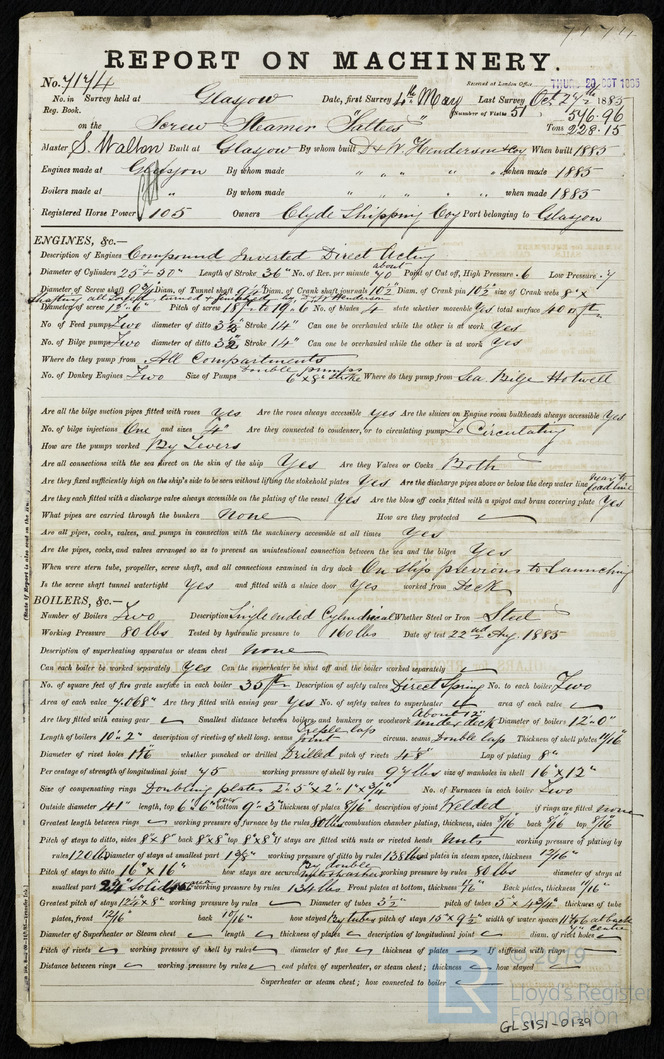 7174
REPORT ON MACHINERY.
No. 7174 Received at London Office THURS 29 OCT 1885
No. in Survey held at Glasgow Date, first Survey 4th May Last Survey Oct 27th 1885
Reg. Book. (Number of Visits 51
on the Screw Steamer "Saltees" Tons 546.96
228.15
Master S. Walton Built at Glasgow By whom built D & W. Henderson & Co When built 1885
Engines made at Glasgow By whom made " " " " when made 1885
Boilers made at " By whom made " " " " when made 1885
Registered Horse Power 105 Owners Clyde Shipping Coy Port belonging to Glasgow
ENGINES, &c.—
Description of Engines Compound Inverted Direct Acting
Diameter of Cylinders 25 + 50" Length of Stroke 36" No. of Rev. per minute about 70 Point of Cut off, High Pressure .6 Low Pressure .7
Diameter of Screw shaft 9¾ Diam. of Tunnel shaft 9½ Diam. of Crank shaft journals 10½" Diam. of Crank pin 10½" size of Crank webs 8" x
Shafting all Ingot, turned & finished by D & W Henderson
Diameter of screw 12'-6" Pitch of screw to 19.6 No. of blades 4 state whether moveable Yes total surface 40 sq ft
No. of Feed pumps Two diameter of ditto 3½ Stroke 14" Can one be overhauled while the other is at work Yes
No. of Bilge pumps Two diameter of ditto 3½ Stroke 14" Can one be overhauled while the other is at work Yes
Where do they pump from All Compartments
No. of Donkey Engines Two Size of Pumps double pumps 6" x 8" stroke Where do they pump from Sea Bilge Hotwell
Are all the bilge suction pipes fitted with roses Yes Are the roses always accessible Yes Are the sluices on Engine room bulkheads always accessible Yes
No. of bilge injections One and sizes 4" Are they connected to condenser, or to circulating pump To Circulating
How are the pumps worked By Levers
Are all connections with the sea direct on the skin of the ship Yes Are they Valves or Cocks Both
Are they fixed sufficiently high on the ship's side to be seen without lifting the stokehold plates Yes Are the discharge pipes above or below the deep water line near to load line
Are they each fitted with a discharge valve always accessible on the plating of the vessel Yes Are the blow off cocks fitted with a spigot and brass covering plate Yes
What pipes are carried through the bunkers None How are they protected ✓
Are all pipes, cocks, valves, and pumps in connection with the machinery accessible at all times Yes
Are the pipes, cocks, and valves arranged so as to prevent an unintentional connection between the sea and the bilges Yes
When were stern tube, propeller, screw shaft, and all connections examined in dry dock On Slip previous to Launching
Is the screw shaft tunnel watertight Yes and fitted with a sluice door Yes worked from Deck
BOILERS, &c.—
Number of Boilers Two Description Single ended Cylindrical Whether Steel or Iron Steel
Working Pressure 80 lbs Tested by hydraulic pressure to 160 lbs Date of test 22nd Aug. 1885
Description of superheating apparatus or steam chest none
Can each boiler be worked separately Yes Can the superheater be shut off and the boiler worked separately ✓
No. of square feet of fire grate surface in each boiler 35 ft Description of safety valves Direct Spring No. to each boiler Two
Area of each valve 7.068" Are they fitted with easing gear Yes No. of safety valves to superheater ✓ area of each valve ✓
Are they fitted with easing gear ✓ Smallest distance between boilers and bunkers or woodwork About 12" under deck Diameter of boilers 12'-0"
Length of boilers 10'-2" description of riveting of shell long. seams Treble Lap Joint circum. seams Double Lap Thickness of shell plates 11/16"
Diameter of rivet holes whether punched or drilled Drilled pitch of rivets 4⅛" Lap of plating 8"
Per centage of strength of longitudinal joint 75 working pressure of shell by rules 97 lbs size of manholes in shell 16" x 12"
Size of compensating rings Doubling plates 2'.5" x 2'.1" x ¾" No. of Furnaces in each boiler Two
Outside diameter 41" length, top 6'.6" bottom over 9'.3" thickness of plates 8/16" description of joint Welded if rings are fitted none
Greatest length between rings ✓ working pressure of furnace by the rules 80 lbs combustion chamber plating, thickness, sides 8/16" back 8/16" top 8/16"
Pitch of stays to ditto, sides 8" x 8" back 8" x 8" top 8" x 8" If stays are fitted with nuts or riveted heads Nuts working pressure of plating by
rules 120 lbs Diameter of stays at smallest part 1⅜" working pressure of ditto by rules 138 lbs end plates in steam space, thickness 12/16"
Pitch of stays to ditto 16" x 16" how stays are secured By double nuts & washers working pressure by rules 80 lbs diameter of stays at
smallest part working pressure by rules 134 lbs Front plates at bottom, thickness Back plates, thickness 11/16"
Greatest pitch of stays 12¼ x 8" working pressure of plate by rules Diameter of tubes 3½" pitch of tubes 5" x 4¾" thickness of tube
plates, front 12/16" back 12/16" how stayed By tubes pitch of stays 15" x 9½" width of water spaces at back centre
Diameter of Superheater or Steam chest ✓ length ✓ thickness of plates ✓ description of longitudinal joint ✓ diam. of rivet holes ✓
Pitch of rivets ✓ working pressure of shell by rules ✓ diameter of flue ✓ thickness of plates ✓ If stiffened with rings ✓
Distance between rings ✓ working pressure by rules ✓ end plates of superheater, or steam chest; thickness ✓ how stayed ✓
Superheater or steam chest; how connected to boiler ✓
© 2019
LR Lloyd's Register
Foundation
GLS151-0139